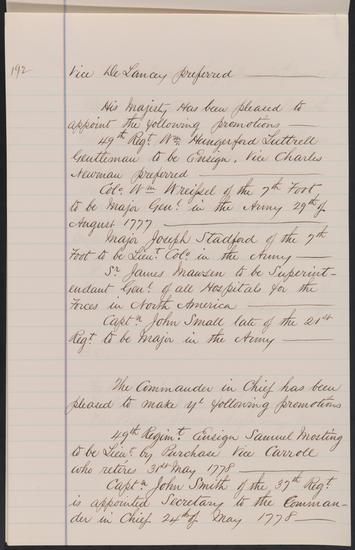 192
Vice De Lancey preferred
His Majesty Has been pleased to
appoint the following promotions
49th Regt. Wm. Hungerford Luttrell
Gentleman to be Ensign, Vice Charles
Newman preferred
Colo. Wm Wreipel of the 7th Foot,
to be Major Genl. in the Army 29th of
August 1777
Major Joseph Stadford of the 7th
Foot to be Lieut. Colo. in the Army
Sr. James Mawsen to be Superint-
endant Genl. of all Hospitals for the
Forces in North America
Captn. John Small late of the 21st
Regt. to be Major in the Army
The Commander in Chief has been
pleased to make yt. following promotions
49th Regimt. Ensign Samuel Mosting
to be Lieut. by Purchase Vice Carroll
who retires 31st May 1778
Captn. John Smith of the 37th Regt.
is appointed Secretary to the Comman-
der in Chief 24th of May 1778